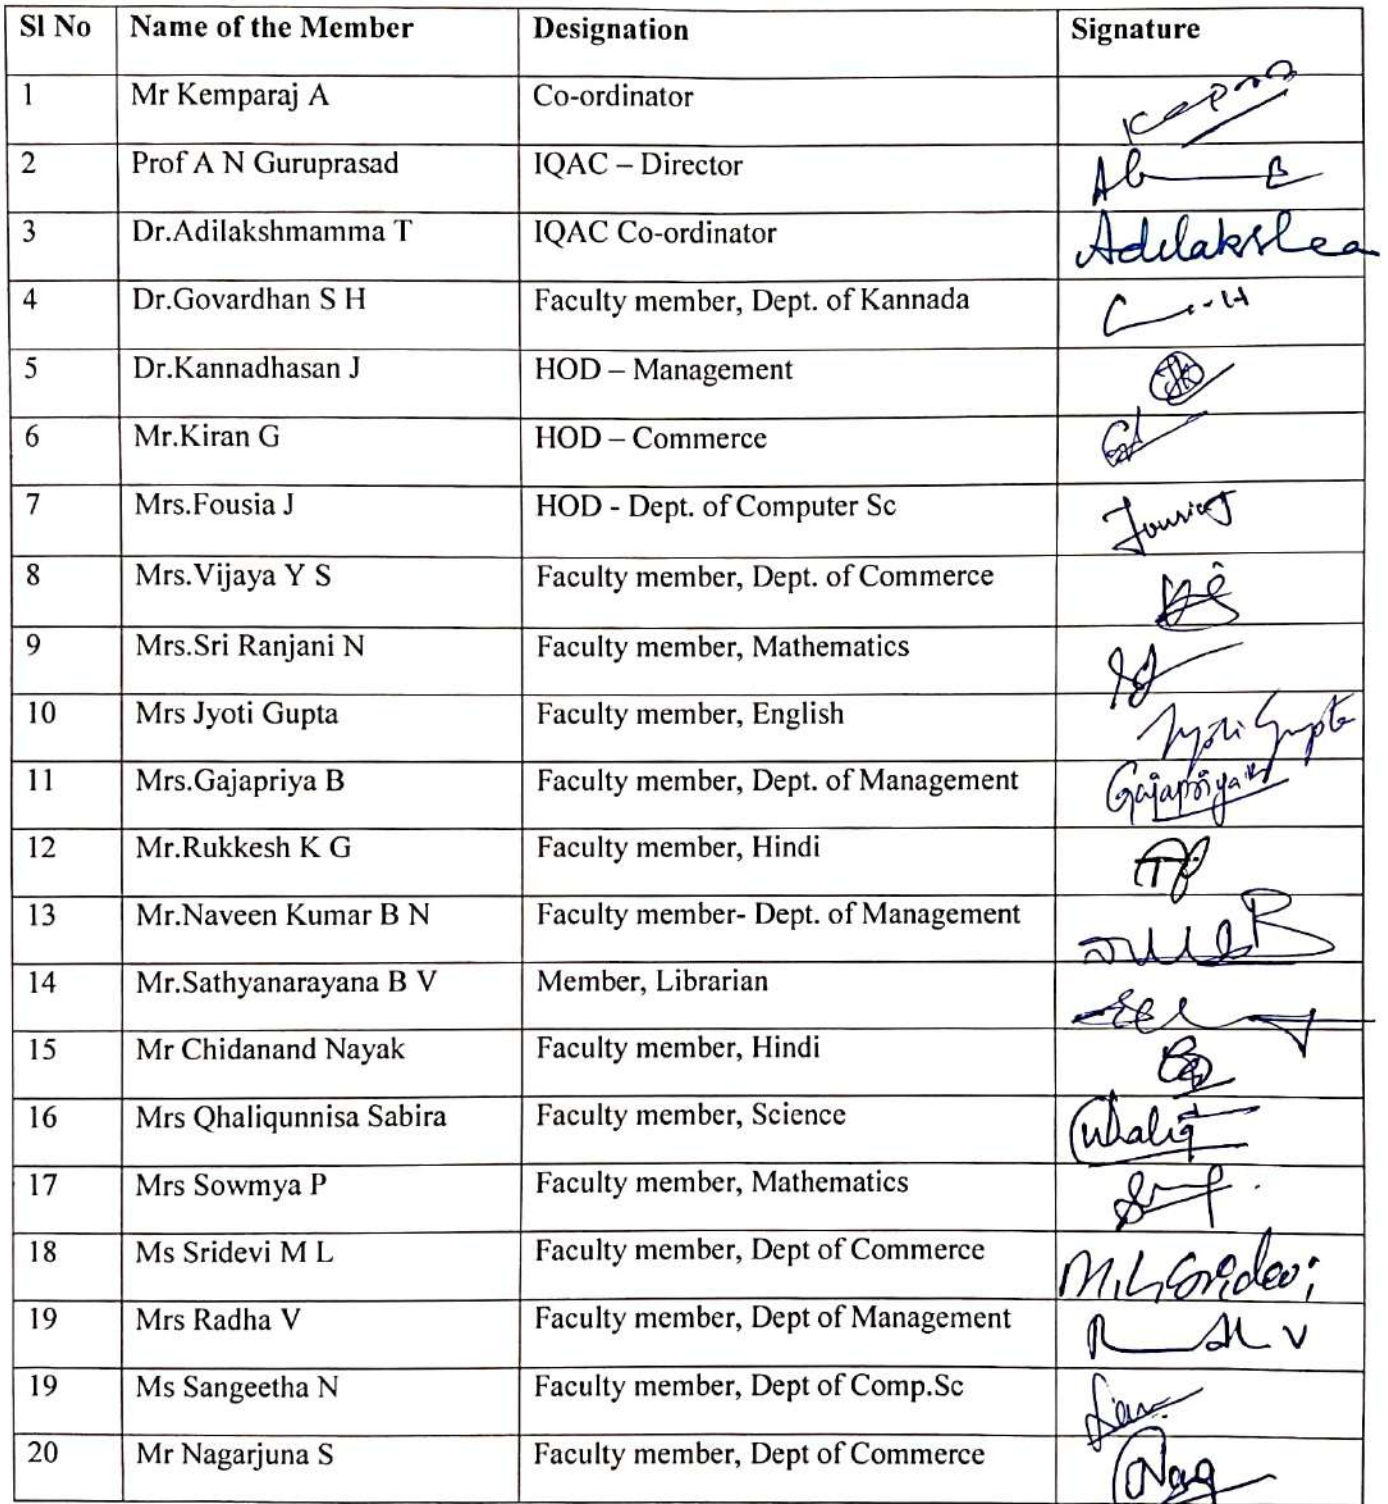 Sl No Name of the Member Designation Signature
1 Mr Kemparaj A Co-ordinator
2 Prof A N Guruprasad IQAC – Director
3 Dr.Adilakshmamma T IQAC Co-ordinator
4 Dr.Govardhan S H Faculty member, Dept. of Kannada
5 Dr.Kannadhasan J HOD – Management
6 Mr.Kiran G HOD – Commerce
7 Mrs.Fousia J HOD - Dept. of Computer Sc
8 Mrs.Vijaya Y S Faculty member, Dept. of Commerce
9 Mrs.Sri Ranjani N Faculty member, Mathematics
10 Mrs Jyoti Gupta Faculty member, English Jyoti Gupta
11 Mrs.Gajapriya B Faculty member, Dept. of Management Gajapriya
12 Mr.Rukkesh K G Faculty member, Hindi
13 Mr.Naveen Kumar B N Faculty member- Dept. of Management
14 Mr.Sathyanarayana B V Member, Librarian
15 Mr Chidanand Nayak Faculty member, Hindi
16 Mrs Qhaliqunnisa Sabira Faculty member, Science
17 Mrs Sowmya P Faculty member, Mathematics
18 Ms Sridevi M L Faculty member, Dept of Commerce M.L Sridevi
19 Mrs Radha V Faculty member, Dept of Management
19 Ms Sangeetha N Faculty member, Dept of Comp.Sc
20 Mr Nagarjuna S Faculty member, Dept of Commerce Nag